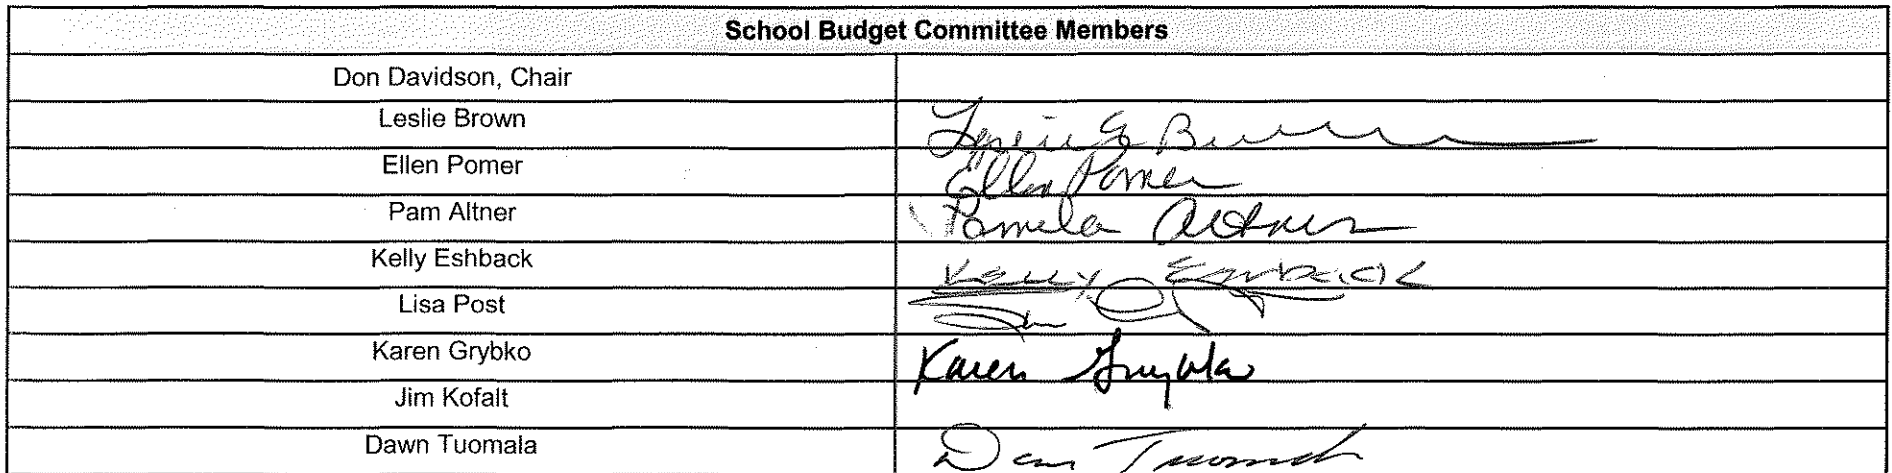 School Budget Committee Members
Don Davidson, Chair
Leslie Brown Leslie G Brown
Ellen Pomer Ellen Pomer
Pam Altner Pamela Altner
Kelly Eshback Kelly Eshback
Lisa Post
Karen Grybko Karen Grybko
Jim Kofalt
Dawn Tuomala Dawn Tuomala